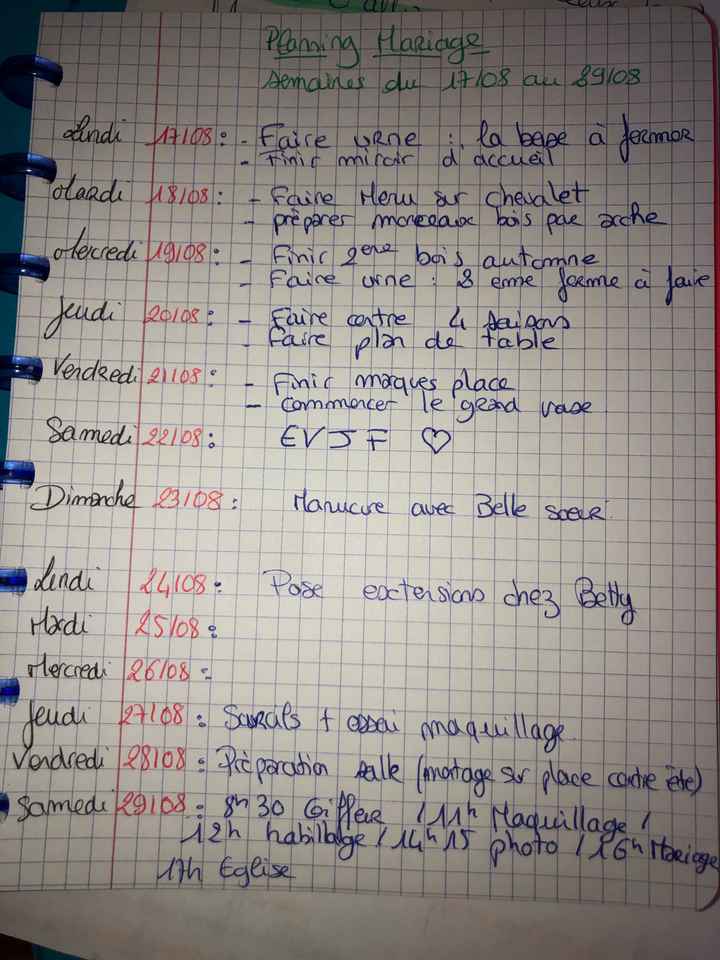 Planning Mariage
Semaines du 17/08 au 29/08
Lundi 17/08 : - Faire urne : la base à former
- Finir miroir d'accueil
Mardi 18/08 : - Faire Menu sur chevalet
- prépares morceaux bois par arche
Mercredi 19/08 : - Finir 2ème bois automne
- Faire urne : 2 eme forme à faire
Jeudi 20/08 : - Faire contre 4 saisons
- Faire plan de table
Vendredi 21/08 : - Finir marques place
- Commencer le grand vase
Samedi 22/08 : EVJF ♡
Dimanche 23/08 : Manucure avec Belle soeur
Lundi 24/08 : Pose extensions chez Betty
Mardi 25/08 :
Mercredi 26/08 :
Jeudi 27/08 : Sourcils + essai maquillage
Vendredi 28/08 : Préparation salle (montage sur place contre été)
Samedi 29/08 : 8h30 Coiffeur / 11h Maquillage /
12h habillage / 14h15 photo / 16h Mariage
17h Eglise